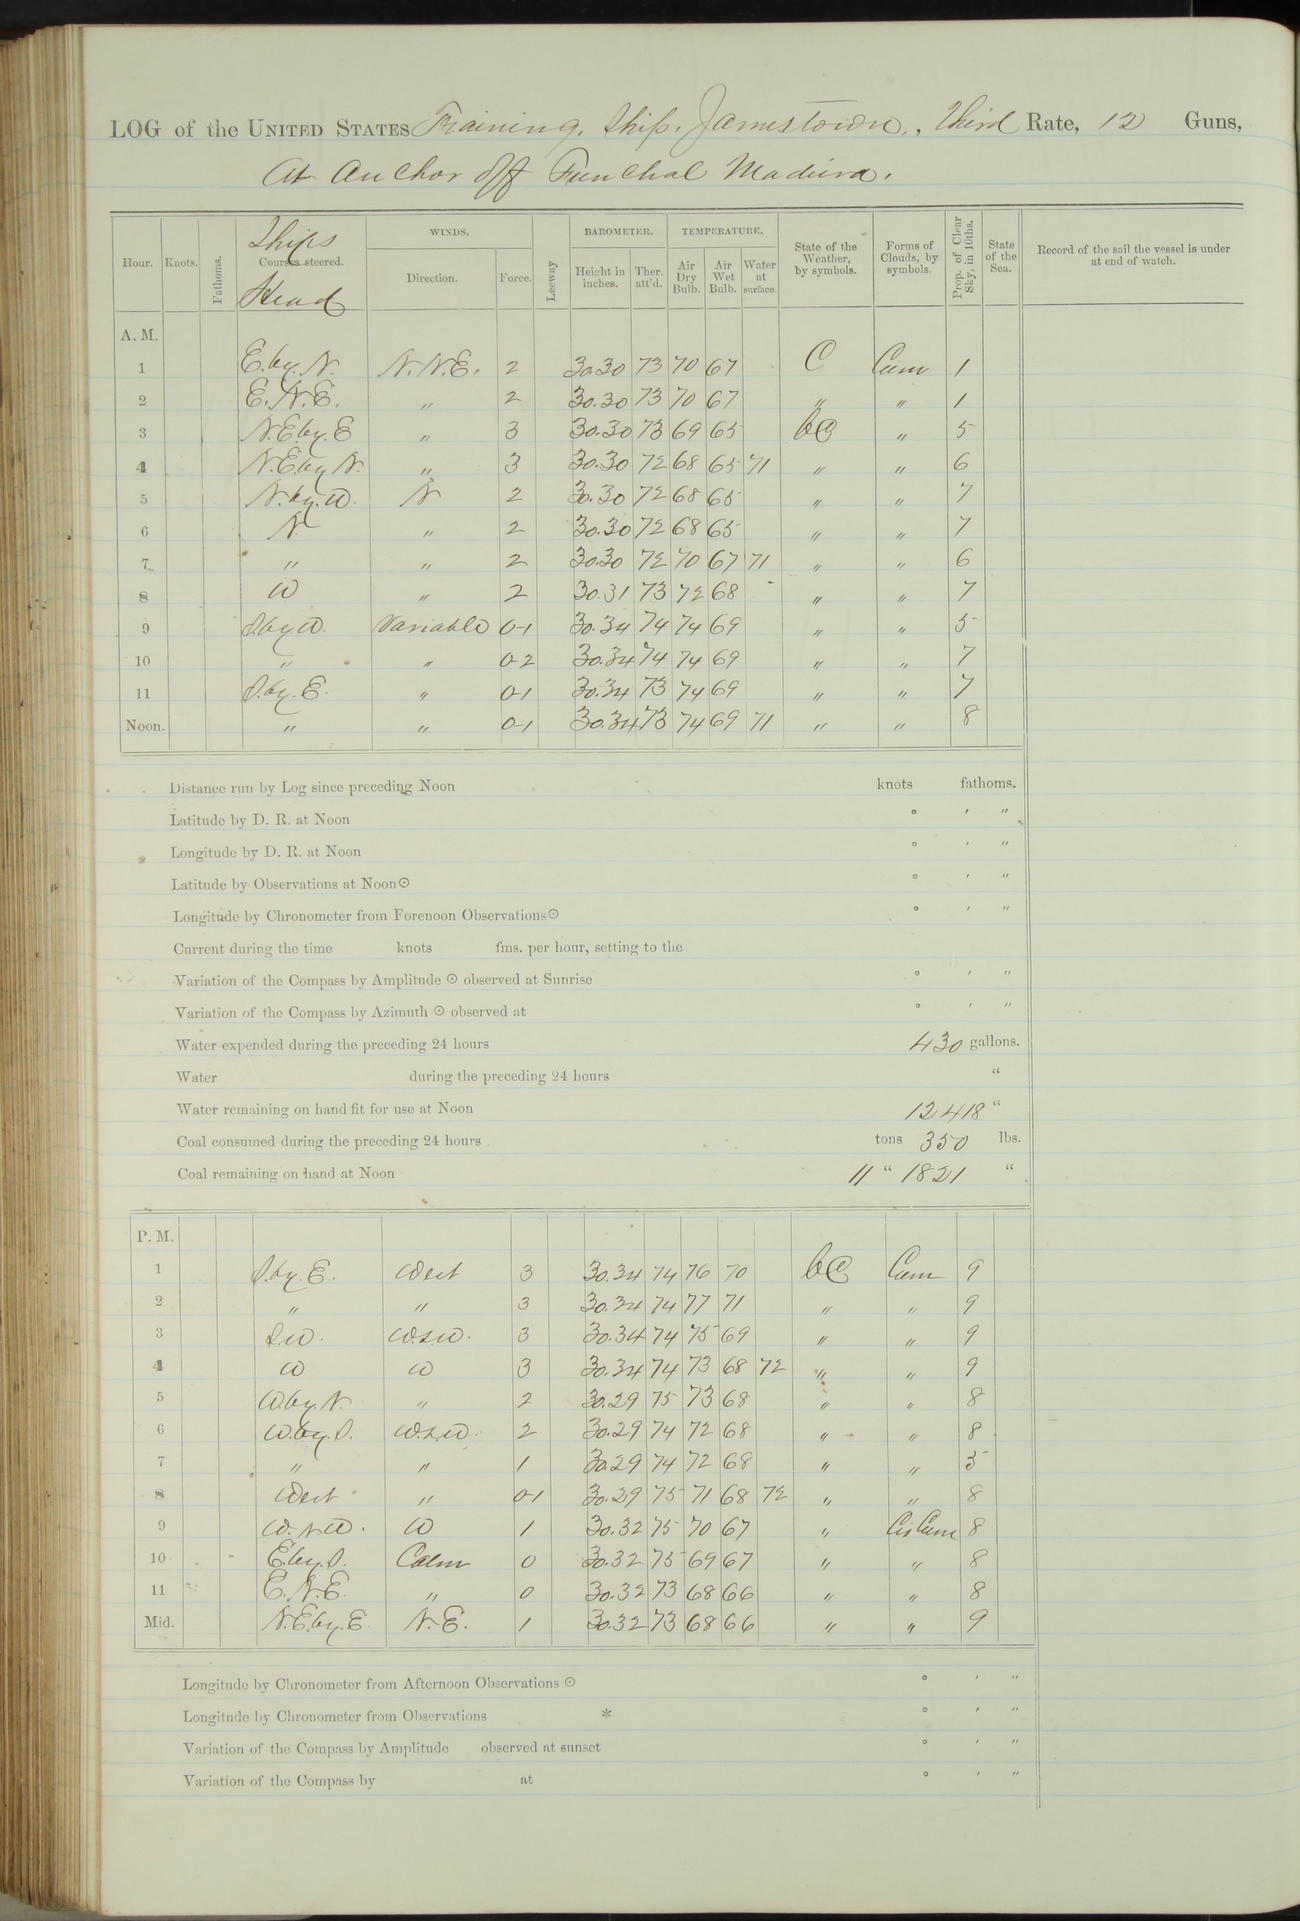 LOG of the UNITED STATES Training Ship Jamestown, Third Rate, 12 Guns,
At Anchor off Funchal Madeira.
Hour. Knots. Fathoms. Ships Courses steered. Head WINDS. Direction. Force. Leeway BAROMETER. Height in inches. Ther. att'd. TEMPERATURE. Air Dry Bulb. Air Wet Bulb. Water at surface. State of the Weather, by symbols. Forms of Clouds, by symbols. Prop. of Clear Sky, in 10ths. State of the Sea. Record of the sail the vessel is under at end of watch.
A. M.
1 E. by. N. N. N. E. 2 30.30 73 70 67 C Cum 1
2 E. N. E. " 2 30.30 73 70 67 " " 1
3 N. E. by. E " 3 30.30 73 69 65 bc " 5
4 N. E. by N. " 3 30.30 72 68 65 71 " " 6
5 N. by. W. N 2 30.30 72 68 65 " " 7
6 N " 2 30.30 72 68 65 " " 7
7 " " 2 30.30 72 70 67 71 " " 6
8 W " 2 30.31 73 72 68 " " 7
9 S. by W. Variable 0-1 30.34 74 74 69 " " 5
10 " " 0-2 30.34 74 74 69 " " 7
11 S. by. E. " 0-1 30.34 73 74 69 " " 7
Noon. " " 0-1 30.34 73 74 69 71 " " 8
Distance run by Log since preceding Noon knots fathoms.
Latitude by D. R. at Noon ° ' "
Longitude by D. R. at Noon ° ' "
Latitude by Observations at Noon ☉ ° ' "
Longitude by Chronometer from Forenoon Observations ☉ ° ' "
Current during the time knots fms. per hour, setting to the
Variation of the Compass by Amplitude ☉ observed at Sunrise ° ' "
Variation of the Compass by Azimuth ☉ observed at ° ' "
Water expended during the preceding 24 hours 430 gallons.
Water during the preceding 24 hours "
Water remaining on hand fit for use at Noon 12418 "
Coal consumed during the preceding 24 hours tons 350 lbs.
Coal remaining on hand at Noon 11 " 1821 "
P. M.
1 S. by. E. West 3 30.34 74 76 70 bc Cum 9
2 " " 3 30.34 74 77 71 " " 9
3 S. W. W.S.W. 3 30.34 74 75 69 " " 9
4 W W 3 30.34 74 73 68 72 " " 9
5 W. by. N. " 2 30.29 75 73 68 " " 8
6 W. by. S. W.S.W. 2 30.29 74 72 68 " " 8
7 " " 1 30.29 74 72 68 " " 5
8 West " 0-1 30.29 75 71 68 72 " " 8
9 W. N. W. W 1 30.32 75 70 67 " Cir Cum 8
10 E. by. S. Calm 0 30.32 75 69 67 " " 8
11 E. N. E. " 0 30.32 73 68 66 " " 8
Mid. N. E. by. E N. E. 1 30.32 73 68 66 " " 9
Longitude by Chronometer from Afternoon Observations ☉ ° ' "
Longitude by Chronometer from Observations * ° ' "
Variation of the Compass by Amplitude observed at sunset ° ' "
Variation of the Compass by at ° ' "